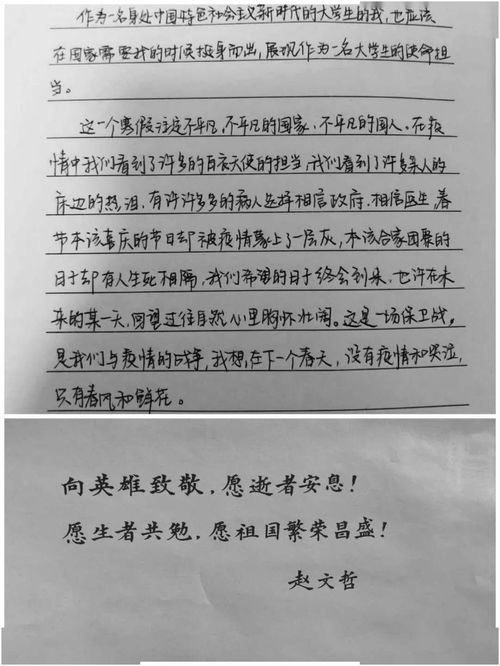 作为一名身处中国特色社会主义新时代的大学生的我，也应该
在国家需要我的时候挺身而出，展现作为一名大学生的使命担
当。
这一个寒假注定不平凡，不平凡的国家、不平凡的国人。在疫
情中我们看到了许多的白衣天使的担当，我们看到了许多亲人的
床边的热泪，有许许多多的病人选择相信政府，相信医生，春
节本该喜庆的节日却被疫情蒙上了一层灰，本该合家团聚的
日子却有人生死相隔，我们希望的日子终会到来，也许在未
来的某一天，回望过往自然心里胸怀壮阔。这是一场保卫战，
是我们与疫情的战争，我想，在下一个春天，没有疫情和哭泣，
只有春风和鲜花。
向英雄致敬，愿逝者安息！
愿生者共勉，愿祖国繁荣昌盛！
赵文哲